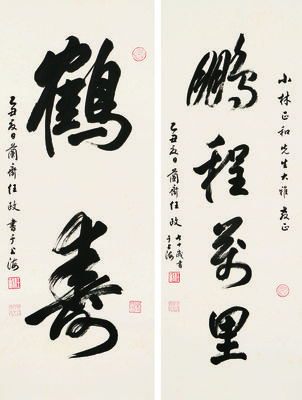 小林正和先生大雅教正
鹏程萬里
乙丑夏日蘭齋任政
七十歲書
于上海
鶴壽
乙丑夏日蘭齋任政書于上海